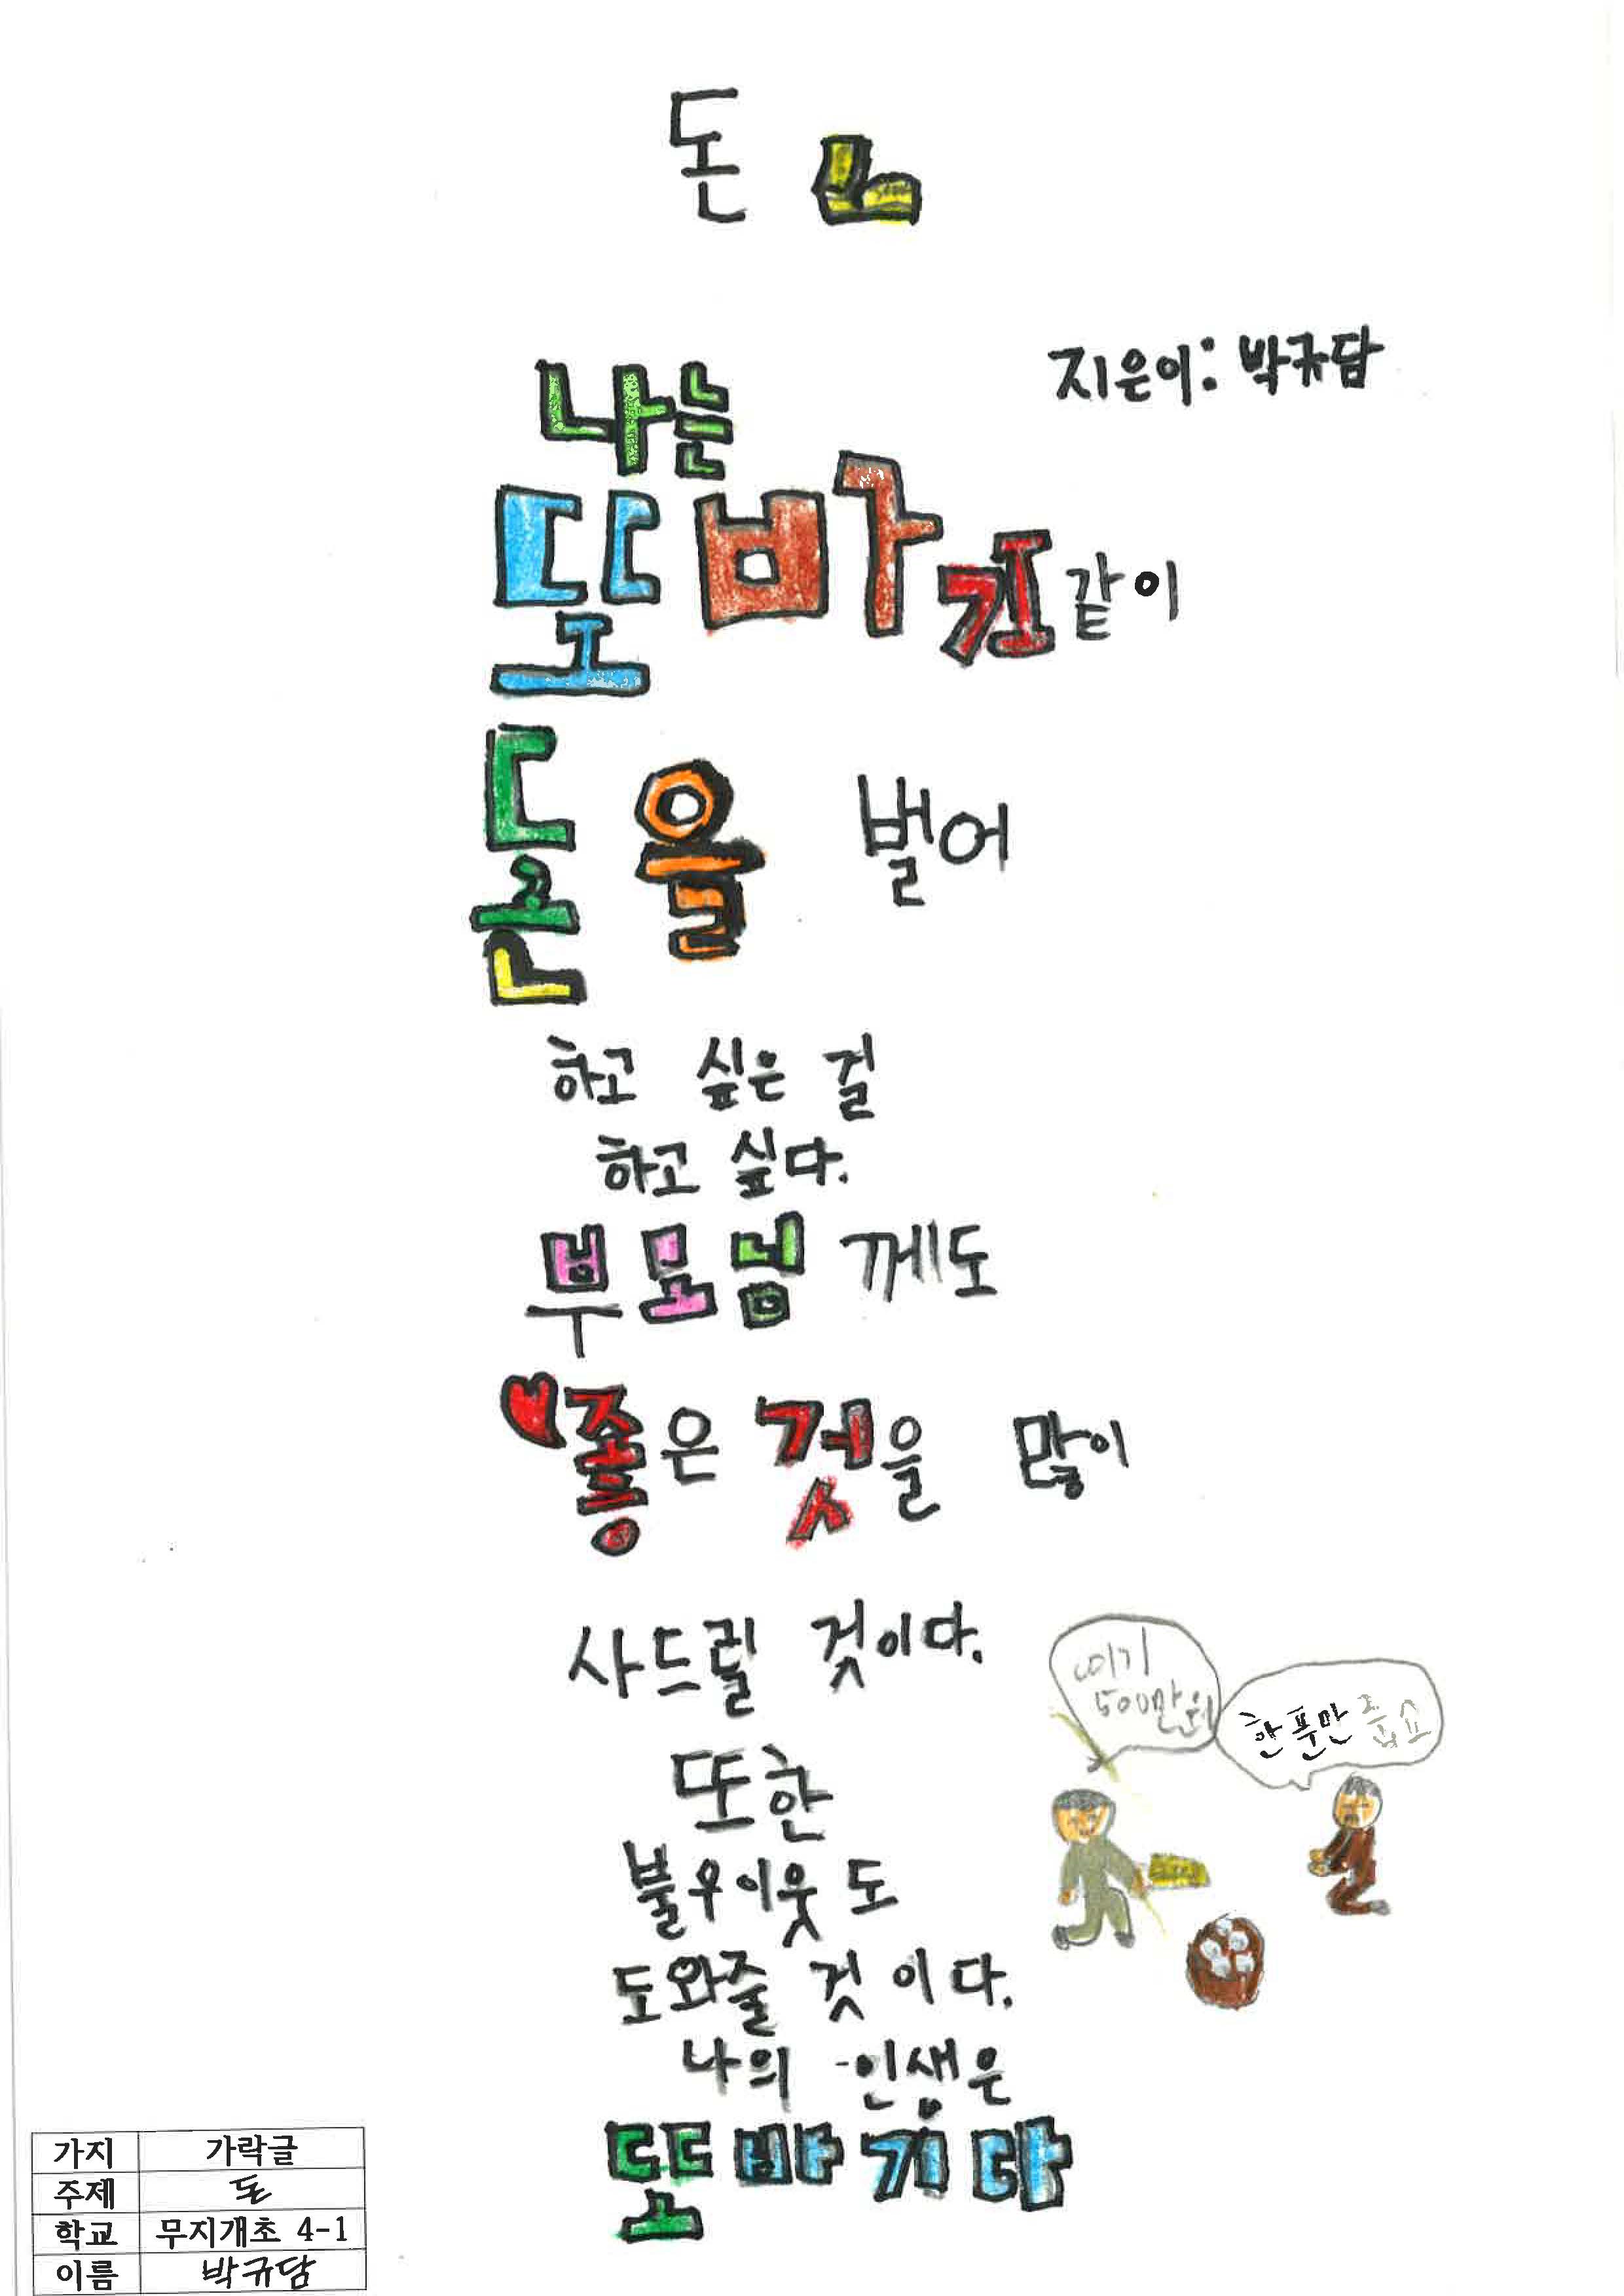 돈
지은이: 박규담
나는
또바기같이
돈을 벌어
하고 싶은 걸
하고 싶다.
부모님 께도
좋은 것을 많이
사드릴 것이다.
여기
500만원
한푼만 줍쇼
또한
불우이웃도
도와줄 것이다.
나의 인생은
또바기다
가지 가락글
주제 돈
학교 무지개초 4-1
이름 박규담